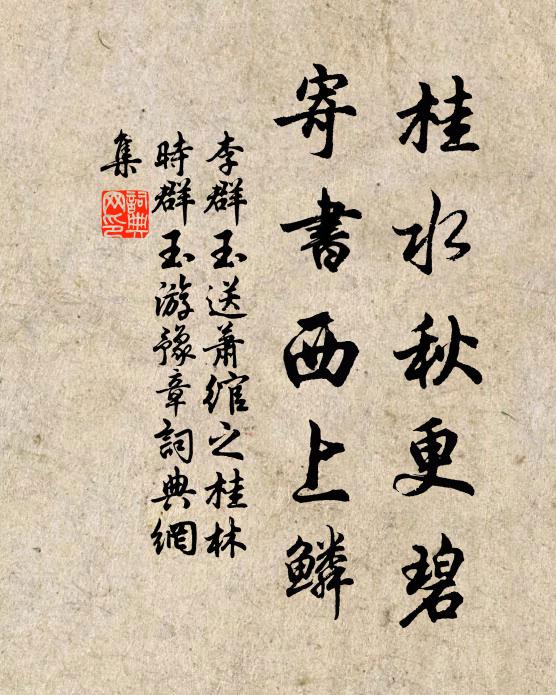 桂水秋更碧
寄書西上鱗
李群玉送蕭綰之桂林
時群玉游豫章詞典網
集
詞典
网印